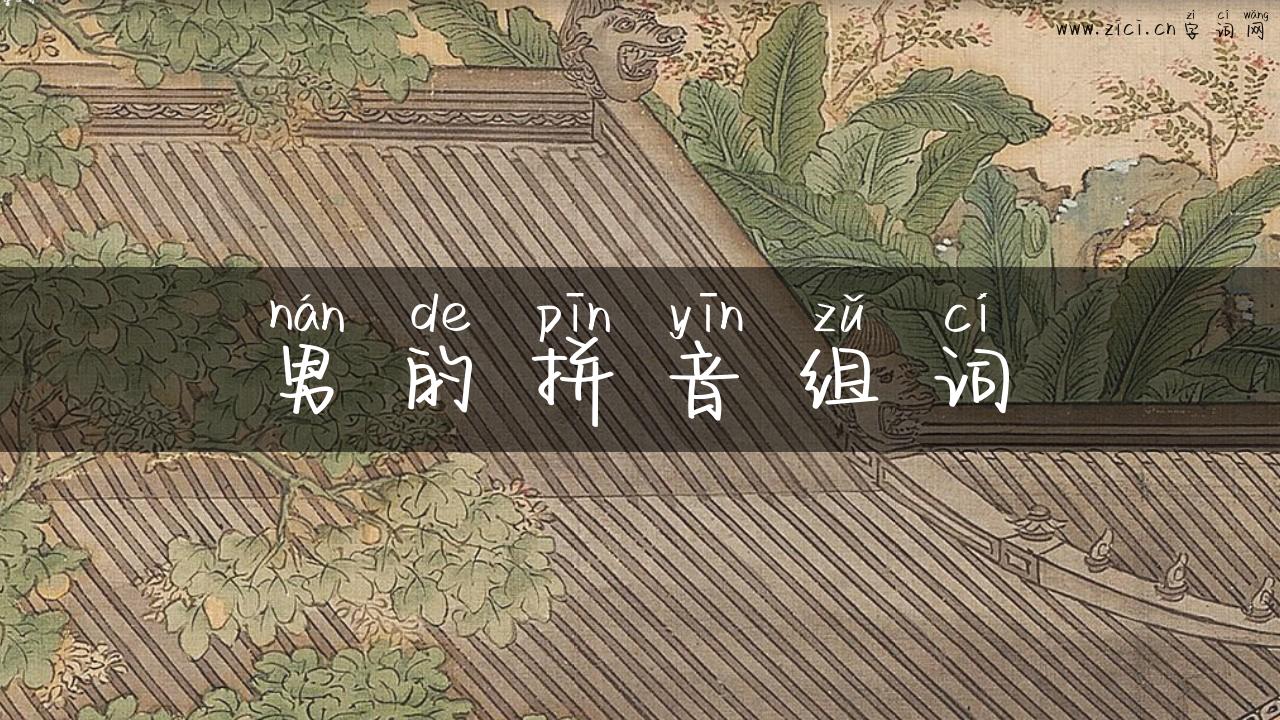 zì cí wǎng
www.zici.cn 字词网
nán de pīn yīn zǔ cí
男的拼音组词